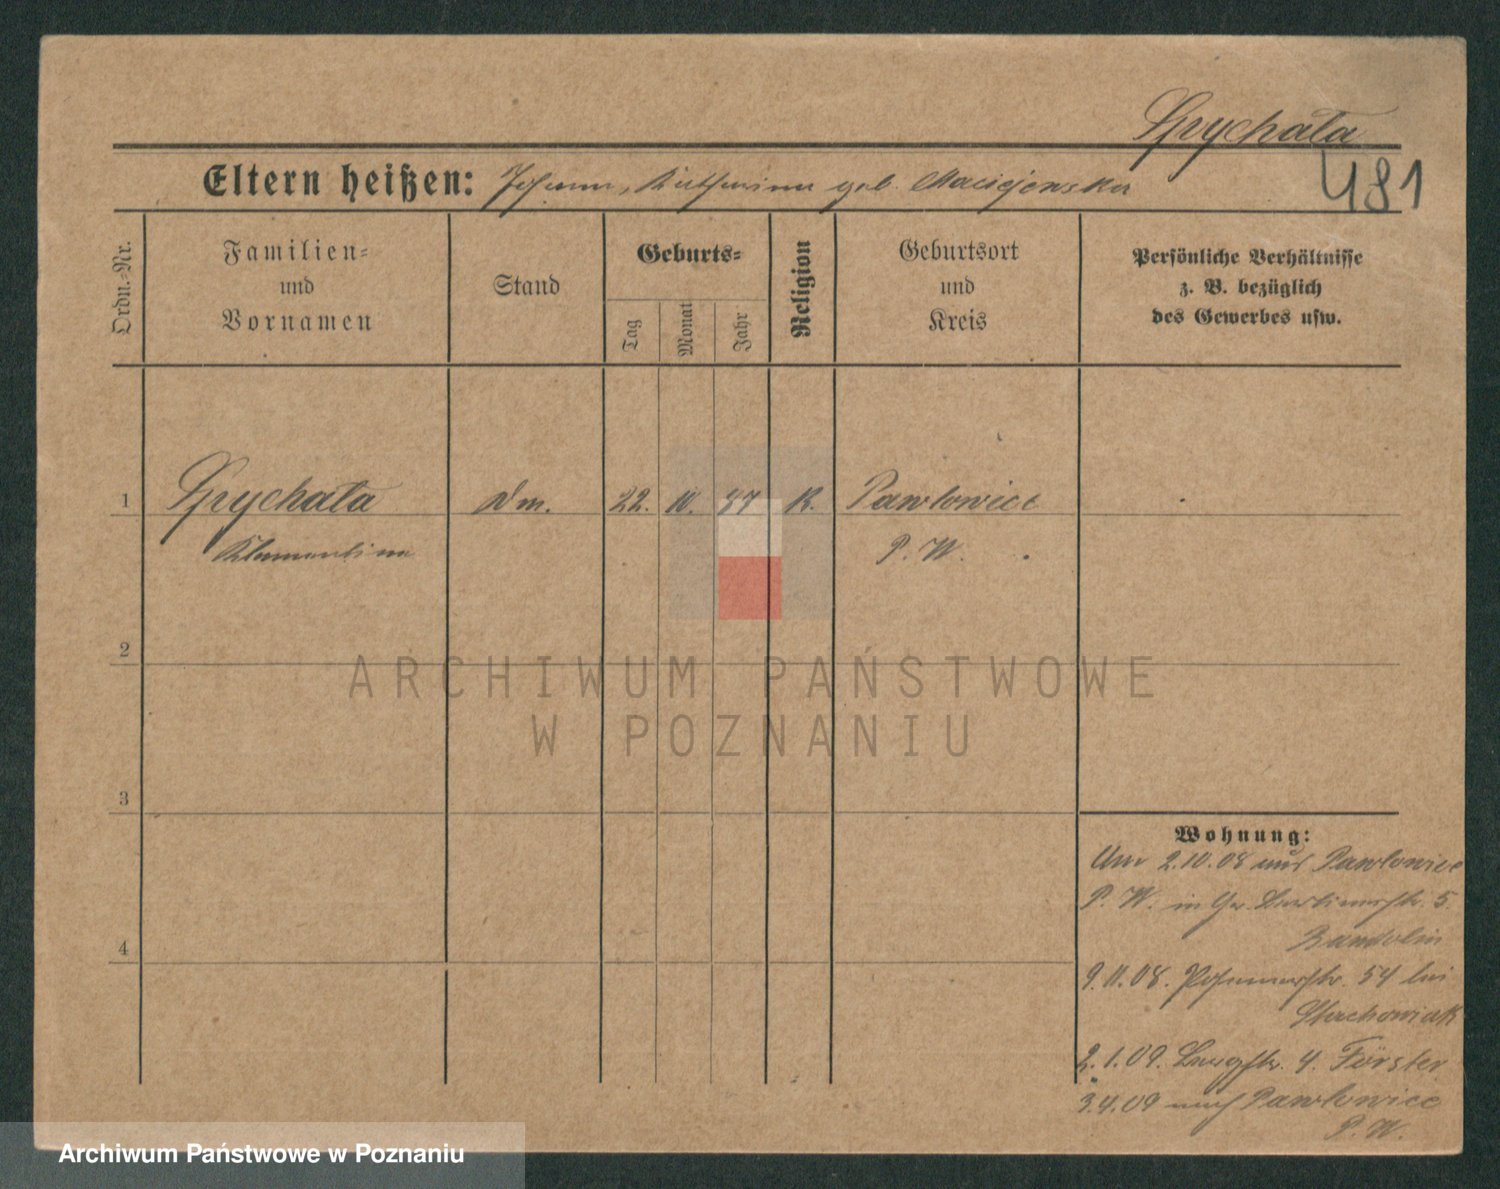 Spychała
481
Eltern heißen: Johann, Katharina geb. Maciejewska
Ordn.-Nr.
Familien-
und
Vornamen
Stand
Geburts-
Tag
Monat
Jahr
Religion
Geburtsort
und
Kreis
Persönliche Verhältnisse
z. B. bezüglich
des Gewerbes usw.
1
Spychała
Dm. 22. 10. 87 K. Pawlowice
Klementine
P. W.
2
ARCHIWUM PAŃSTWOWE
W POZNANIU
3
Wohnung:
2.10.08 aus Pawlowice
P. W. in Gr. Berlinerstr. 5.
4
9.11.08. Posenerstr. 54 bei
Stachowiak
2.1.09. Bergstr. 4. Förster
3.4.09 nach Pawlowice
P. W.
Archiwum Państwowe w Poznaniu